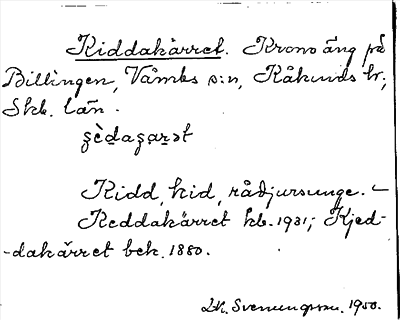 Kiddakärret. Krono äng på
Billingen, Våmbs s:n, Kåkinds hr,
Skb. län.
Kidd, kid, rådjursunge. –
Keddakärret kb. 1931; Kjed-
-dakärret bek. 1880.
Lk. Svenungsson. 1950.